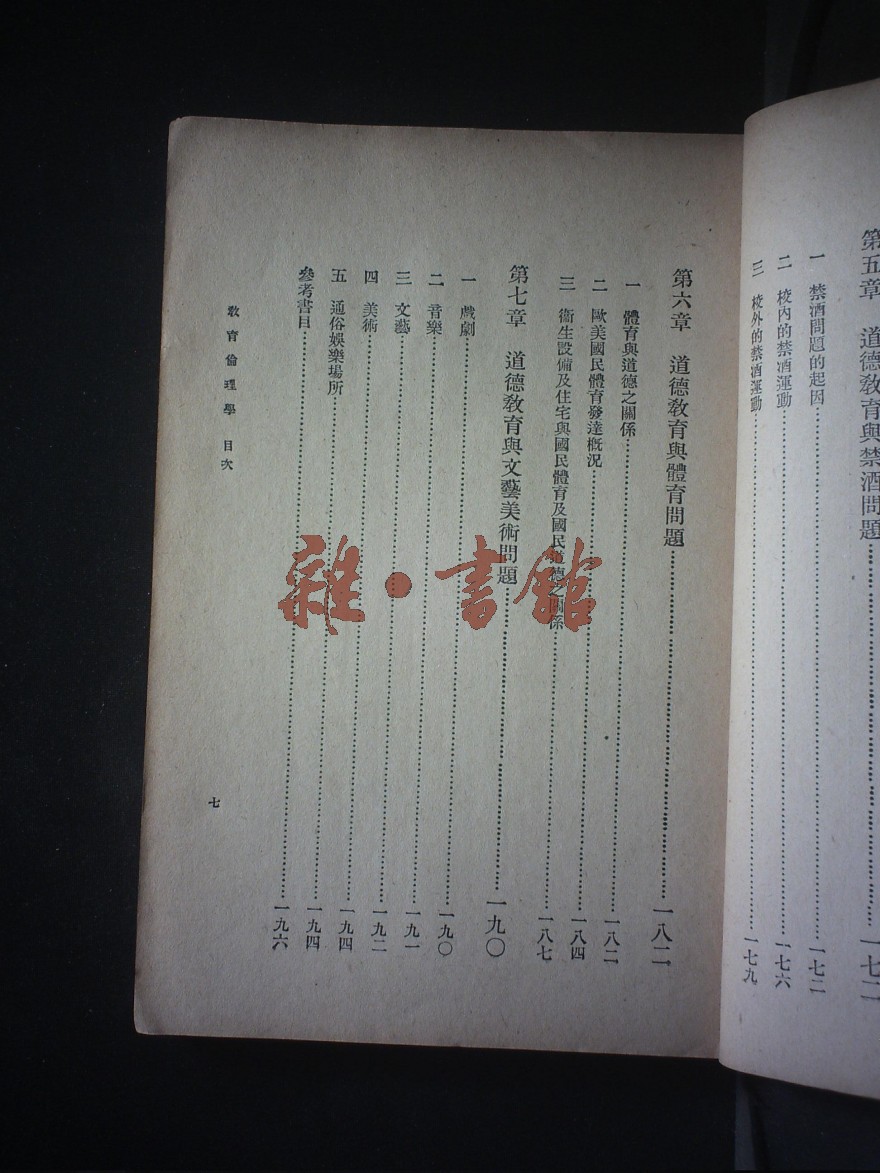 第五章　道德教育與禁酒問題…………一七二
一　禁酒問題的起因…………一七二
二　校內的禁酒運動…………一七六
三　校外的禁酒運動…………一七九
第六章　道德教育與體育問題…………一八二
一　體育與道德之關係…………一八二
二　歐美國民體育發達概況…………一八四
三　衞生設備及住宅與國民體育及國民道德之關係…………一八七
第七章　道德教育與文藝美術問題…………一九〇
一　戲劇…………一九〇
二　音樂…………一九一
三　文藝…………一九二
四　美術…………一九四
五　通俗娛樂場所…………一九四
參考書目…………一九六
教育倫理學　目次
七
雜·書館